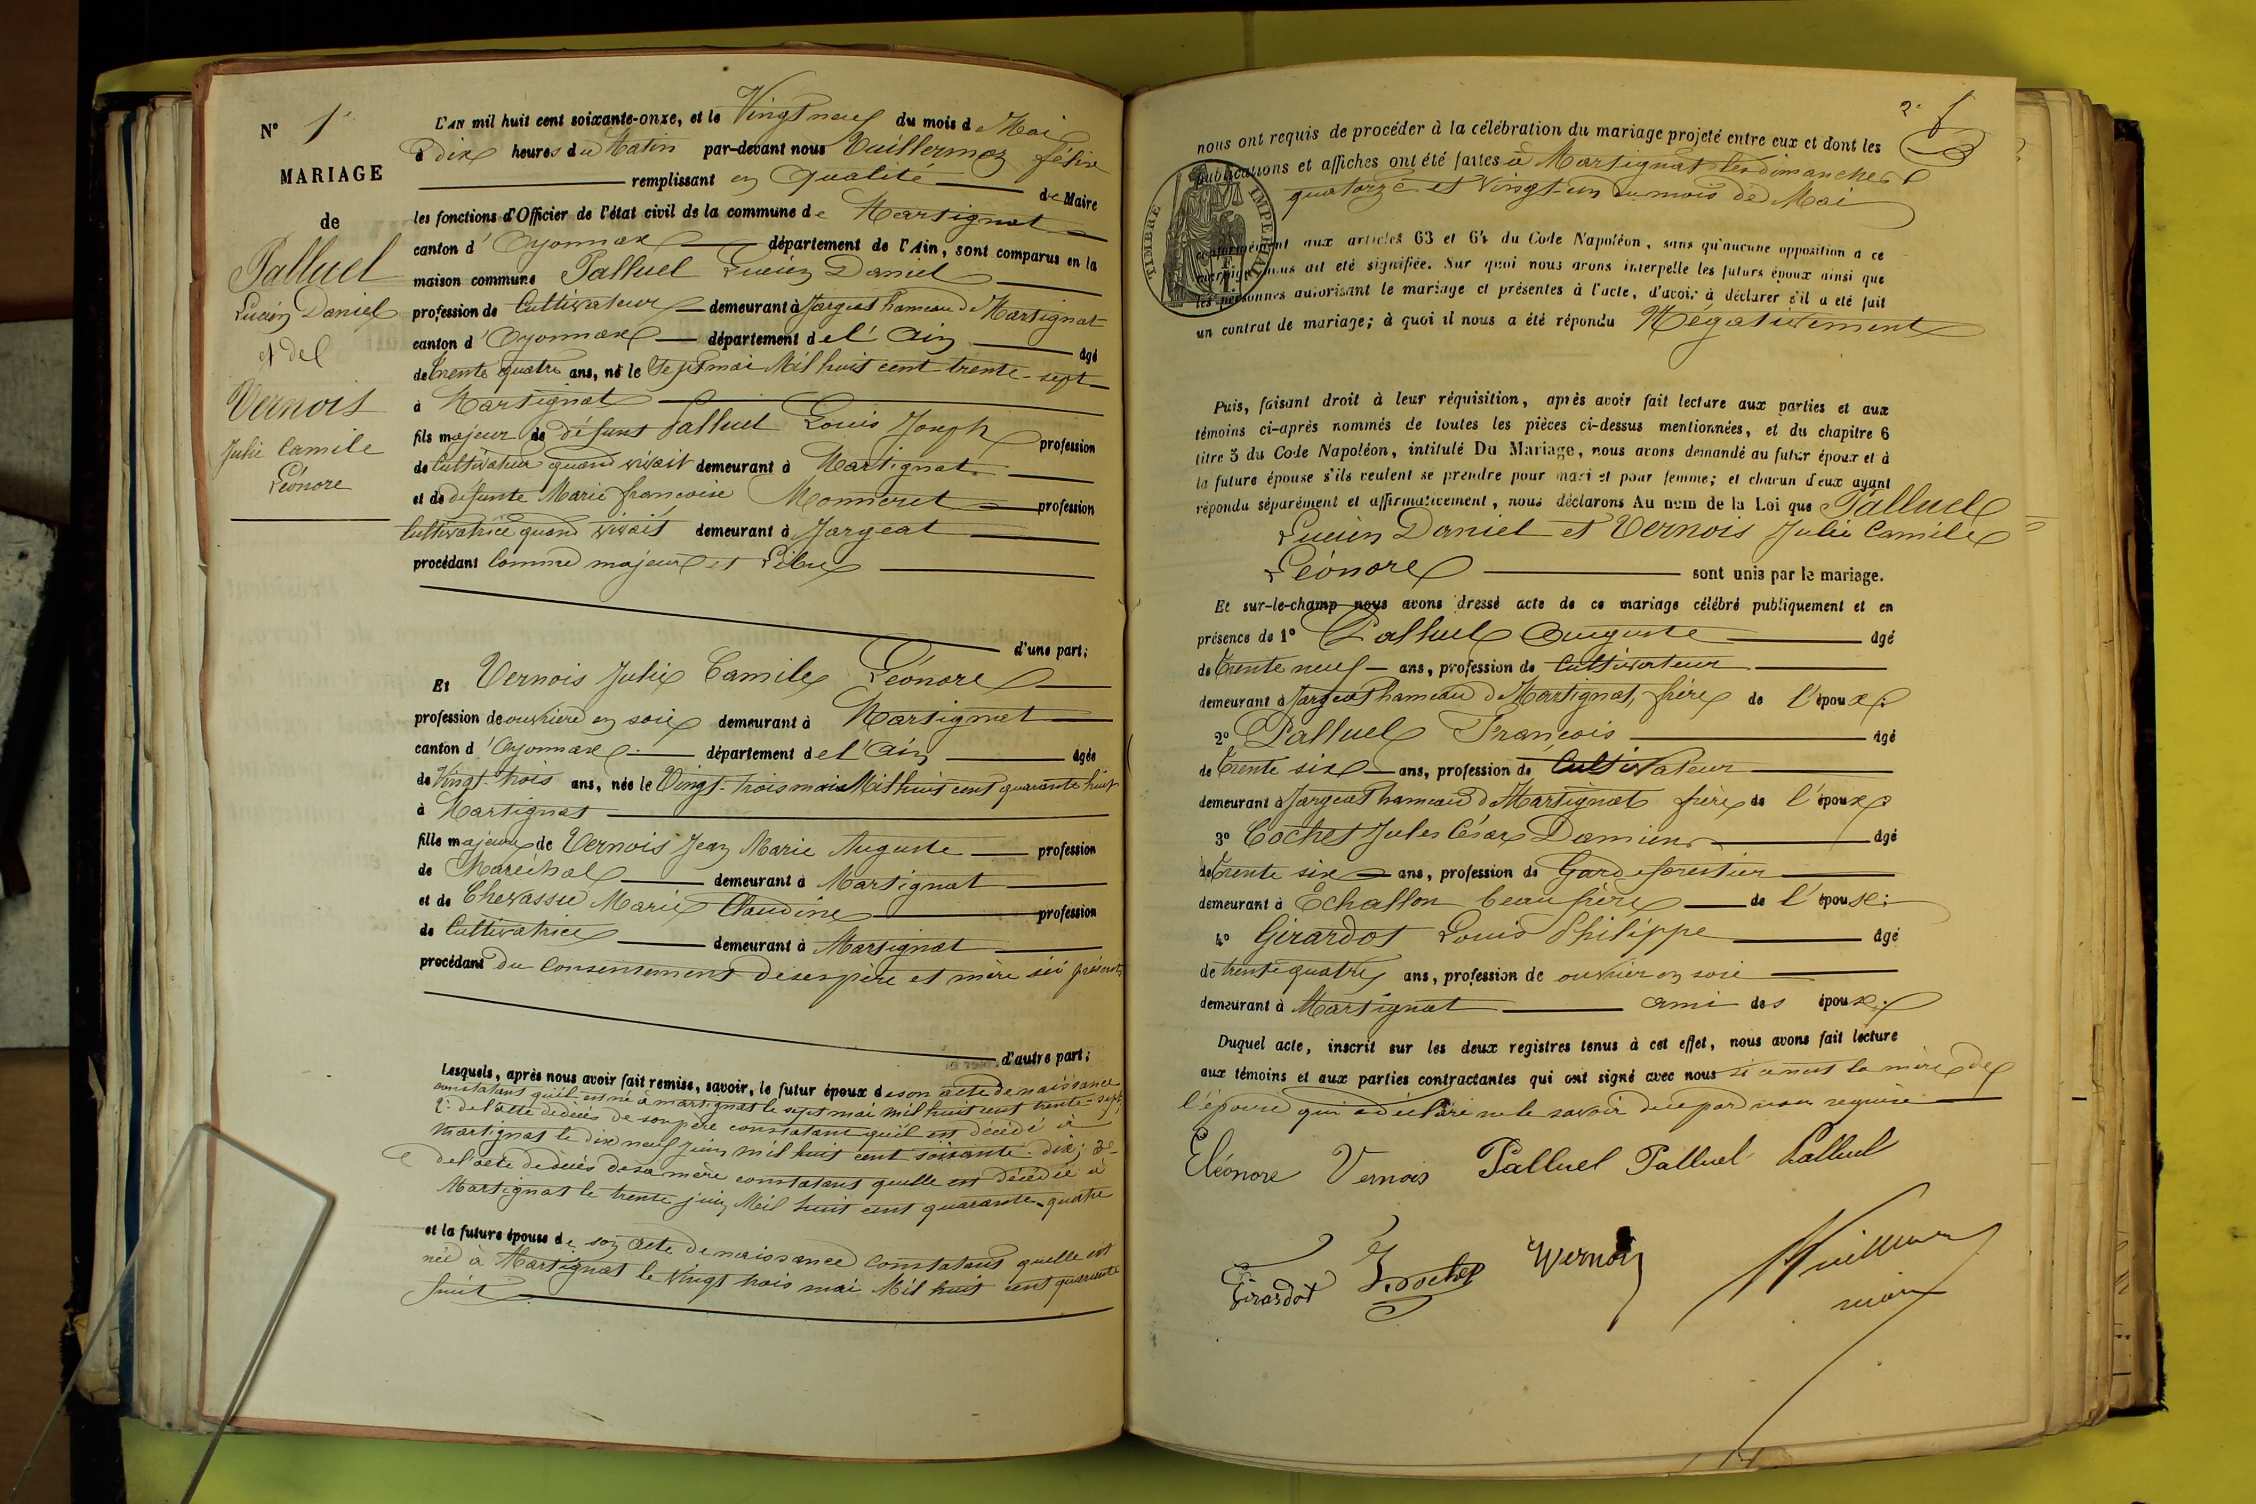 N° 1er
MARIAGE
de
Palluel
Lucien Daniel
et de
Vernois
Julie Camile
Léonore
L'AN mil huit cent soixante-onze, et le Vingt neuf du mois de Mai
à dix heures du Matin par-devant nous Vuillermoz félix
remplissant en Qualité de Maire
les fonctions d'Officier de l'état civil de la commune de Martignat
canton d'Oyonnax département de l'Ain, sont comparus en la
maison commune Palluel Lucien Daniel
profession de Cultivateur demeurant à Jargeat hameau de Martignat
canton d'Oyonnax département de l'Ain âgé
de trente quatre ans, né le Sept mai Mil huit cent trente-sept
à Martignat
fils majeur de défunt Palluel Louis Joseph profession
de Cultivateur quand vivait demeurant à Martignat
et de défunte Marie françoise Monneret profession
Cultivatrice quand vivait demeurant à Jargeat
procédant Comme majeur et Libre
d'une part;
Et Vernois Julie Camile Léonore
profession de ouvrière en soie demeurant à Martignat
canton d'Oyonnax département de l'Ain âgée
de Vingt-trois ans, née le Vingt-trois mai Mil huit cent quarante huit
à Martignat
fille majeure de Vernois Jean Marie Auguste profession
de Maréchal demeurant à Martignat
et de Chevassu Marie Claudine profession
de Cultivatrice demeurant à Martignat
procédant du Consentement de ses père et mère ici présents
d'autre part;
Lesquels, après nous avoir fait remise, savoir, le futur époux de son acte de naissance
constatant qu'il est né à martignat le sept mai mil huit cent trente-sept;
2° de l'acte de décès de son père constatant qu'il est décédé à
Martignat le dix neuf juin mil huit cent soixante-dix; 3°
de l'acte de décès de sa mère constatant quelle est décédée à
Martignat le trente juin Mil huit cent quarante-quatre
et la future épouse de son acte de naissance Constatant quelle est
née à Martignat le vingt trois mai Mil huit cent quarante
huit
2e
nous ont requis de procéder à la célébration du mariage projeté entre eux et dont les
publications et affiches ont été faites à Martignat les dimanches
quatorze et vingt-un du mois de Mai
TIMBRE IMPERIAL
conformément aux articles 63 et 64 du Code Napoléon, sans qu'aucune opposition à ce
mariage nous ait été signifiée. Sur quoi nous avons interpellé les futurs époux ainsi que
les personnes autorisant le mariage et présentes à l'acte, d'avoir à déclarer s'il a été fait
un contrat de mariage; à quoi il nous a été répondu Négativement
Puis, faisant droit à leur réquisition, après avoir fait lecture aux parties et aux
témoins ci-après nommés de toutes les pièces ci-dessus mentionnées, et du chapitre 6
titre 5 du Code Napoléon, intitulé Du Mariage, nous avons demandé au futur époux et à
la future épouse s'ils veulent se prendre pour mari et pour femme; et chacun d'eux ayant
répondu séparément et affirmativement, nous déclarons Au nom de la Loi que Palluel
Lucien Daniel et Vernois Julie Camile
Léonore sont unis par le mariage.
Et sur-le-champ nous avons dressé acte de ce mariage célébré publiquement et en
présence de 1° Palluel Auguste âgé
de trente neuf ans, profession de Cultivateur
demeurant à Jargeat hameau de Martignat, frère de l'époux;
2° Palluel François âgé
de trente six ans, profession de Cultivateur
demeurant à Jargeat hameau de Martignat frère de l'époux;
3° Cochet Jules César Damien âgé
de trente six ans, profession de Garde forestier
demeurant à Echallon beau frère de l'époux;
4° Girardot Louis Philippe âgé
de trente quatre ans, profession de ouvrier en soie
demeurant à Martignat ami des époux;
Duquel acte, inscrit sur les deux registres tenus à cet effet, nous avons fait lecture
aux témoins et aux parties contractantes qui ont signé avec nous si ce n'est la mère de
l'épouse qui a déclaré ne le savoir de ce par nous requise
Eléonore Vernois Palluel Palluel Palluel
Girardot J. Cochet Vernois Vuillermoz
maire